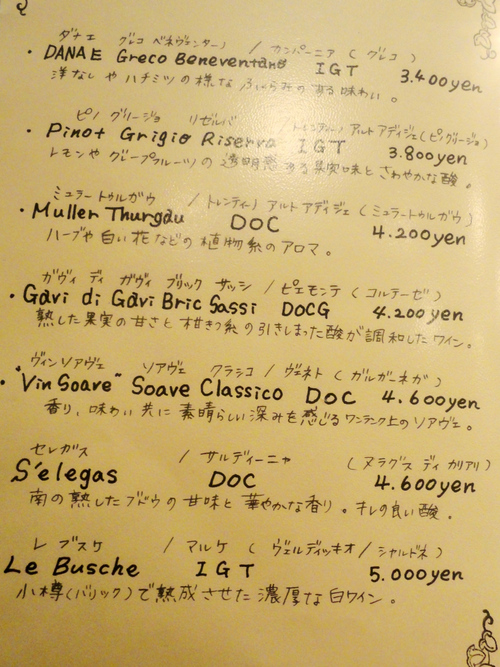 ダナエ グレコ ベネヴェンターノ / カンパーニア ( グレコ )
・DANAE Greco Beneventano IGT 3.400yen
洋なしやハチミツの様なふくらみのある味わい。
ピノ グリージョ リゼルバ トレンティーノ アルト アディジェ(ピノグリージョ)
・Pinot Grigio Riserva IGT 3.800yen
レモンやグレープフルーツの透明感ある果実味とさわやかな酸。
ミュラートゥルガウ / トレンティーノ アルト アディジェ (ミュラートゥルガウ)
・Muller Thurgau DOC 4.200yen
ハーブや白い花などの植物系のアロマ。
ガヴィ ディ ガヴィ ブリック サッシ / ピエモンテ ( コルテーゼ )
・Gavi di Gavi Bric Sassi DOCG 4.200yen
熟した果実の甘さと柑きつ系の引きしまった酸が調和したワイン。
ヴィンソアヴェ ソアヴェ クラシコ / ヴェネト ( ガルガーネガ )
・"Vin Soave" Soave Classico DOC 4.600yen
香り、味わい共に素晴らしい深みを感じるワンランク上のソアヴェ。
セレガス / サルディーニャ (ヌラグス ディ カリアリ)
S'elegas DOC 4.600yen
南の熟したブドウの甘味と華やかな香り。キレの良い酸。
レ ブスケ / マルケ ( ヴェルディッキオ / シャルドネ )
Le Busche IGT 5.000yen
小樽(バリック)で熟成させた濃厚な白ワイン。